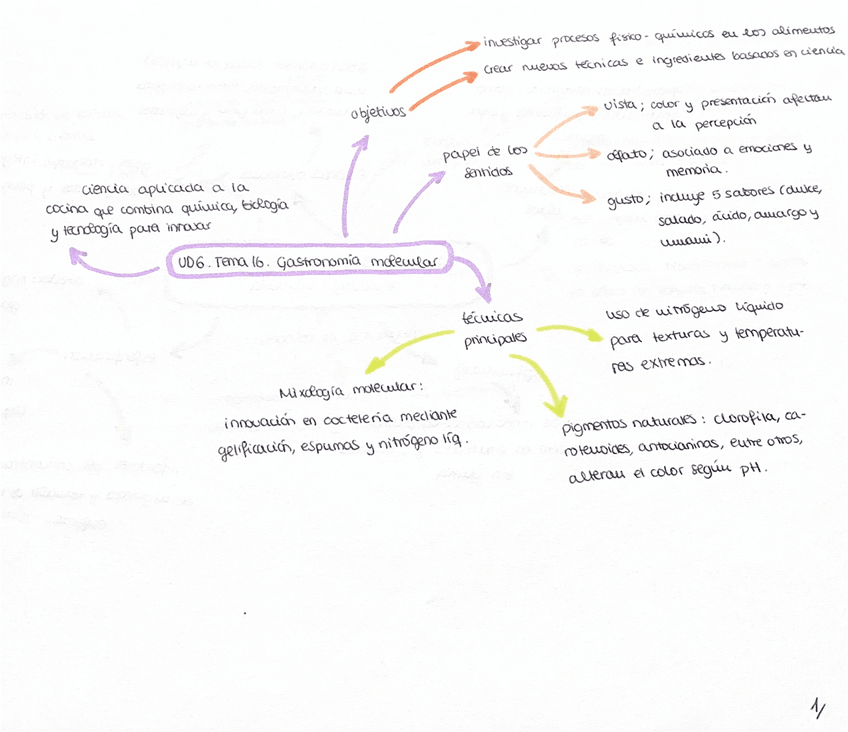 investigar procesos físico-químicos en los alimentos
crear nuevas técnicas e ingredientes basados en ciencia
objetivos
vista; color y presentación afectan
a la percepción
papel de los
sentidos
olfato; asociado a emociones y
memoria.
gusto; incluye 5 sabores (dulce,
salado, ácido, amargo y
umami).
ciencia aplicada a la
cocina que combina química, biología
y tecnología para innovar
UD6. Tema 16. Gastronomía molecular
técnicas
principales
uso de nitrógeno líquido
para texturas y temperatu-
ras extremas.
Mixología molecular:
innovación en coctelería mediante
gelificación, espumas y nitrógeno líq.
pigmentos naturales: clorofila, ca-
rotenoides, antocianinas, entre otros,
alteran el color según pH.
1/